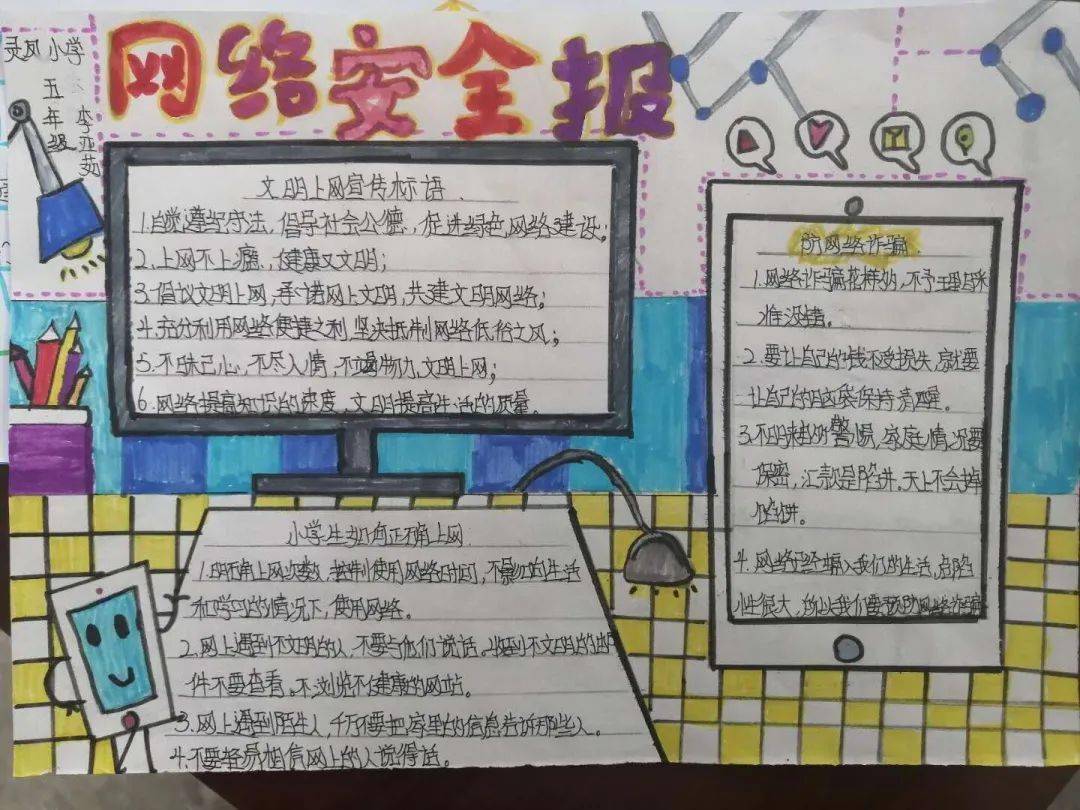 灵凤小学
五年级
李亚茹
网络安全报
文明上网宣传标语
1.自觉遵纪守法,倡导社会公德,促进绿色网络建设;
2.上网不上瘾,健康又文明;
3.倡议文明上网,承诺网上文明,共建文明网络;
4.充分利用网络便捷之利,坚决抵制网络低俗之风;
5.不昧己心,不尽人情,不竭物力,文明上网;
6.网络提高知识的速度,文明提高生活的质量。
防网络诈骗
1.网络诈骗花样多,不予理睬
准没错。
2.要让自己的钱不受损失,就要
让自己的脑袋保持清醒。
3.不明来电多警惕,家庭情况要
保密,汇款是陷井。天上不会掉
馅饼。
4.网络已经融入我们的生活,危险
性很大,所以我们要预防网络诈骗
小学生如何正确上网
1.明确上网次数,控制使用网络时间,不影响生活
和学习的情况下,使用网络。
2.网上遇到不文明的人,不要与他们说话,收到不文明的邮
件不要查看。不浏览不健康的网站。
3.网上遇到陌生人,千万不要把家里的信息告诉那些人。
4.不要轻易相信网上的人说得话。